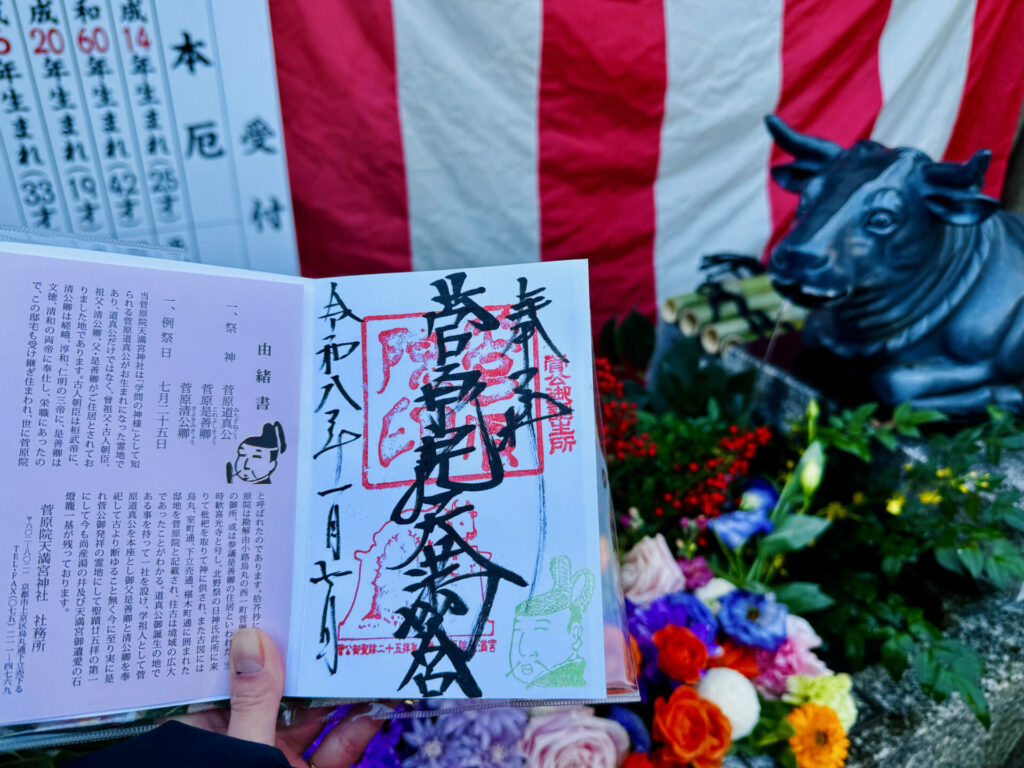 受付
本厄
成14年生まれ(25才
和60年生まれ(42才
成20年生まれ(19才
年生まれ(33才
由緒書
一、祭神 菅原道真公
菅原是善卿
菅原清公卿
一、例祭日 七月二十五日
当菅原院天満宮神社は「学問の神様」として知
られる菅原道真公がお生まれになった霊地で
あり、道真公だけではなく、曾祖父・古人朝臣、
祖父・清公卿、父・是善卿がご住居とされてお
りました地であります。古人朝臣は桓武帝に、
清公卿は嵯峨、淳和、仁明の三帝に、是善卿は
文徳、清和の両帝に奉仕し、栄職にあったの
で、この邸宅も受け継ぎ住まわれ、世に菅原院
と呼ばれたのであります。拾芥抄に
原院は勘解由小路烏丸の西一町菅贈
の御所、或は参議是善卿の住居といわれ、当
時歓喜光寺と号し、北野祭の日神氏此所に来
りて枇杷を取りて神に供され、また古図には
烏丸、室町通、下立売通、椹木町通に囲まれた
邸地を菅原院と記載され、往古は境域の広大
であったことがわかる。道真公御誕生の地で
ある事を持って一社を設け、学祖人として菅
原道真公を本座とし御父是善卿と清公卿を奉
祀して古より断ゆること無く今に至り実に是
れ菅公御発祥の霊地にして聖蹟廿五拝の第一
にして今も尚産湯の井及び天満宮御遺愛の石
燈籠一基が残っております。
菅原院天満宮神社 社務所
〒六〇二-八〇二一 京都市上京区烏丸通下立売下る
TEL・FAX(〇七五)二一一-四七六九
奉拝
菅公御誕生所
菅原院天満宮
令和八年一月七日